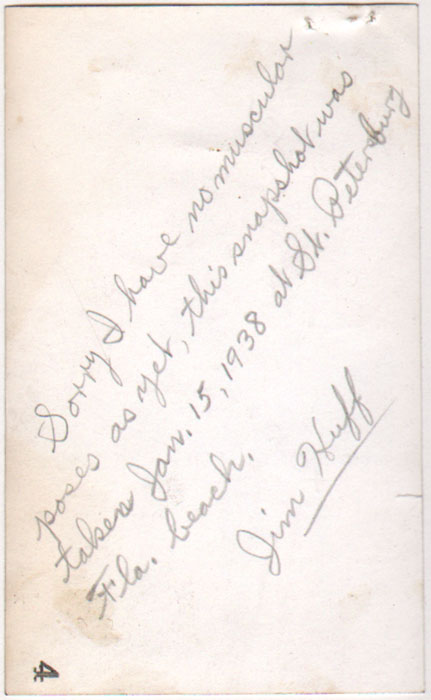 Sorry I have no muscular
poses as yet, this snapshot was
taken Jan. 15, 1938 at St. Petersburg
Fla. beach.
Jim Huff
4